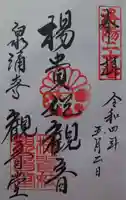 奉拝
令和四年
五月二日
楊貴妃観音
観音堂
泉涌寺